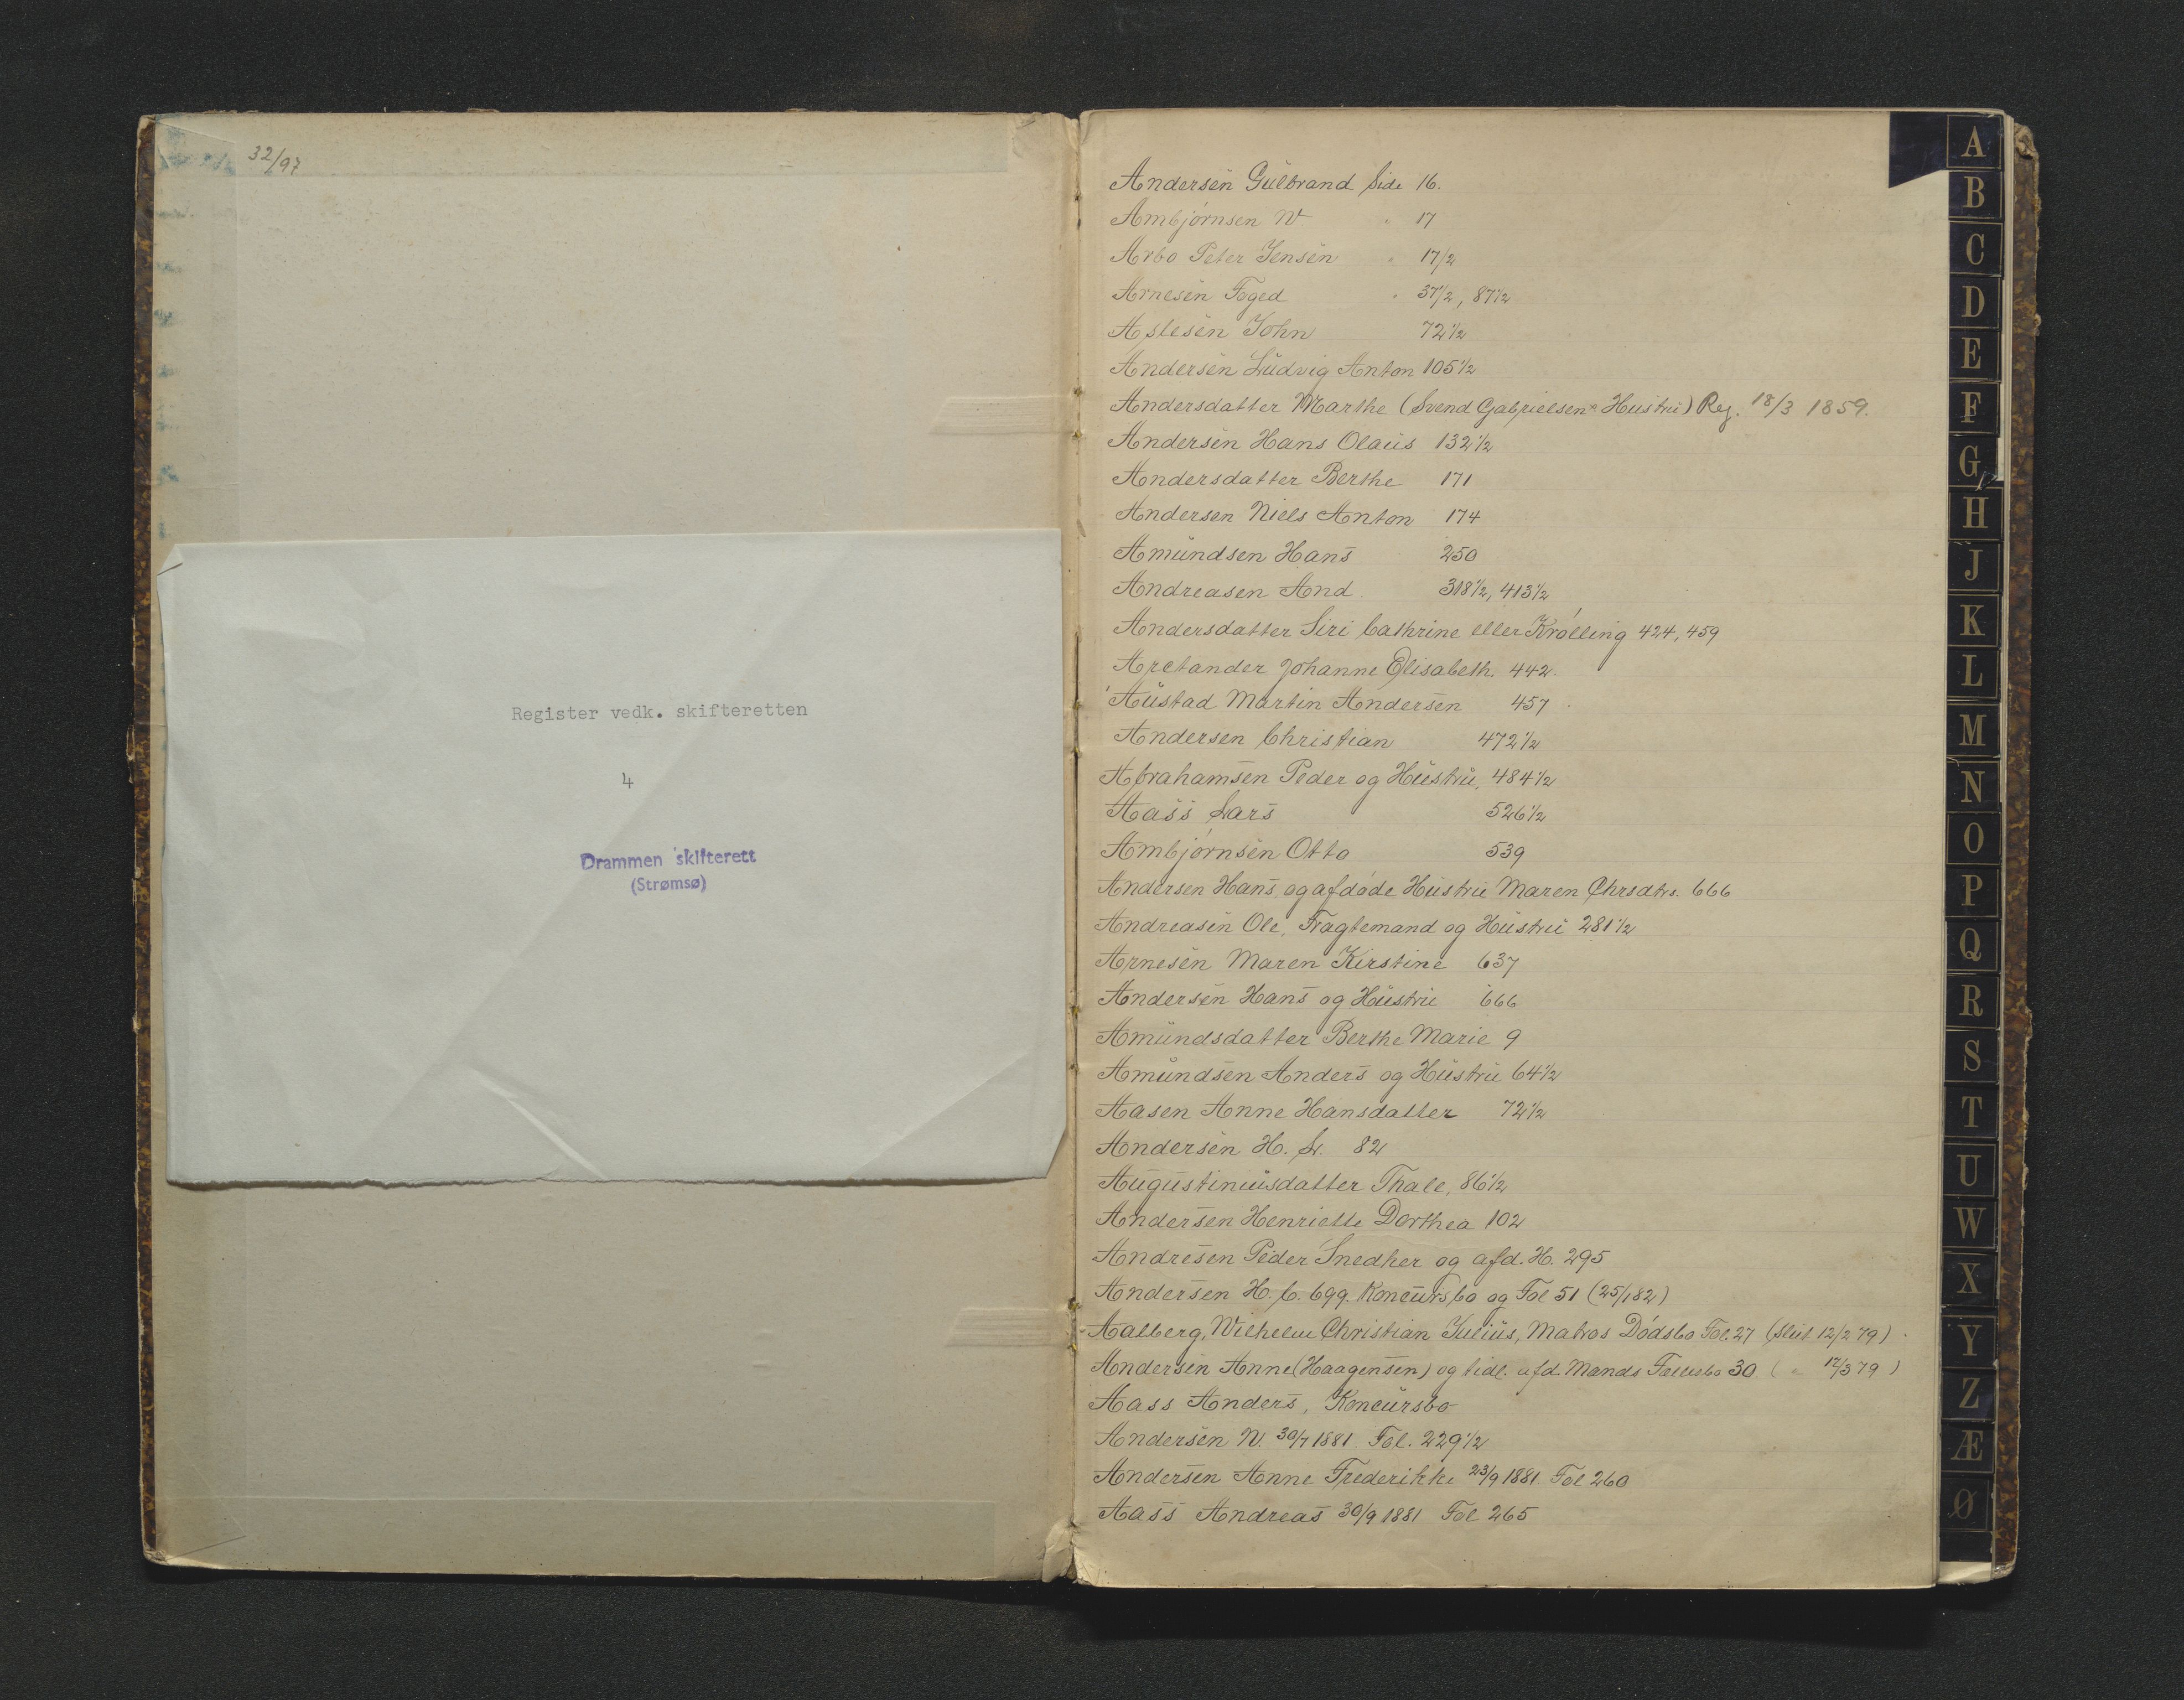 32/97
Register vedk. skifteretten
4
Drammen skifterett
(Strømsø)
Andersen Gulbrand Side 16.
Ambjørnsen N " 17
Arbo Peter Jensen " 17/2
Arnesen Foged " 37/2, 87 1/2
Aslesen John 72 1/2
Andersen Ludvig Anton 105 1/2
Andersdatter Marthe (Svend Gabrielsens Hustru) Reg. 18/3 1859.
Andersen Hans Olaus 132 1/2
Andersdatter Berthe 171
Andersen Niels Anton 174
Amundsen Hans 250
Andreasen And. 318 1/2, 413 1/2
Andersdatter Siri Cathrine eller Krølling 424, 459
Arctander Johanne Elisabeth. 442.
Austad Martin Andersen 457
Andersen Christian 472 1/2
Abrahamsen Peder og Hustru, 484 1/2
Aass Lars 526 1/2
Ambjørnsen Otto 539
Andersen Hans og afdøde Hustru Maren Chrsdtr. 666
Andreasen Ole, Fragtemand og Hustru 281 1/2
Arnesen Maren Kirstine 637
Andersen Hans og Hustru 666
Amundsdatter Berthe Marie 9
Amundsen Anders og Hustru 64 1/2
Aasen Anne Hansdatter 72 1/2
Andersen H. L. 82
Augustinusdatter Thale, 86 1/2
Andersen Henriette Dorthea 102
Andresen Peder Snedker og afd. H. 295
Andersen H. C. 699. Koncursbo og Fol 51 (25/1 82)
Aalberg, Wilhelm Christian Julius, Matros Dødsbo Fol. 27 (Slut. 12/2 79)
Andersen Anne (Haagensen) og tidl. afd. Mands Fællesbo 30 ( " 12/3 79 )
Aass Anders, Koncursbo
Andersen N. 30/7 1881 Fol. 229 1/2
Andersen Anne Frederikke 23/9 1881 Fol 260
Aass Andreas 30/9 1881 Fol 265
A
B
C
D
E
F
G
H
J
K
L
M
N
O
P
Q
R
S
T
U
W
X
Y
Z
Æ
Ø